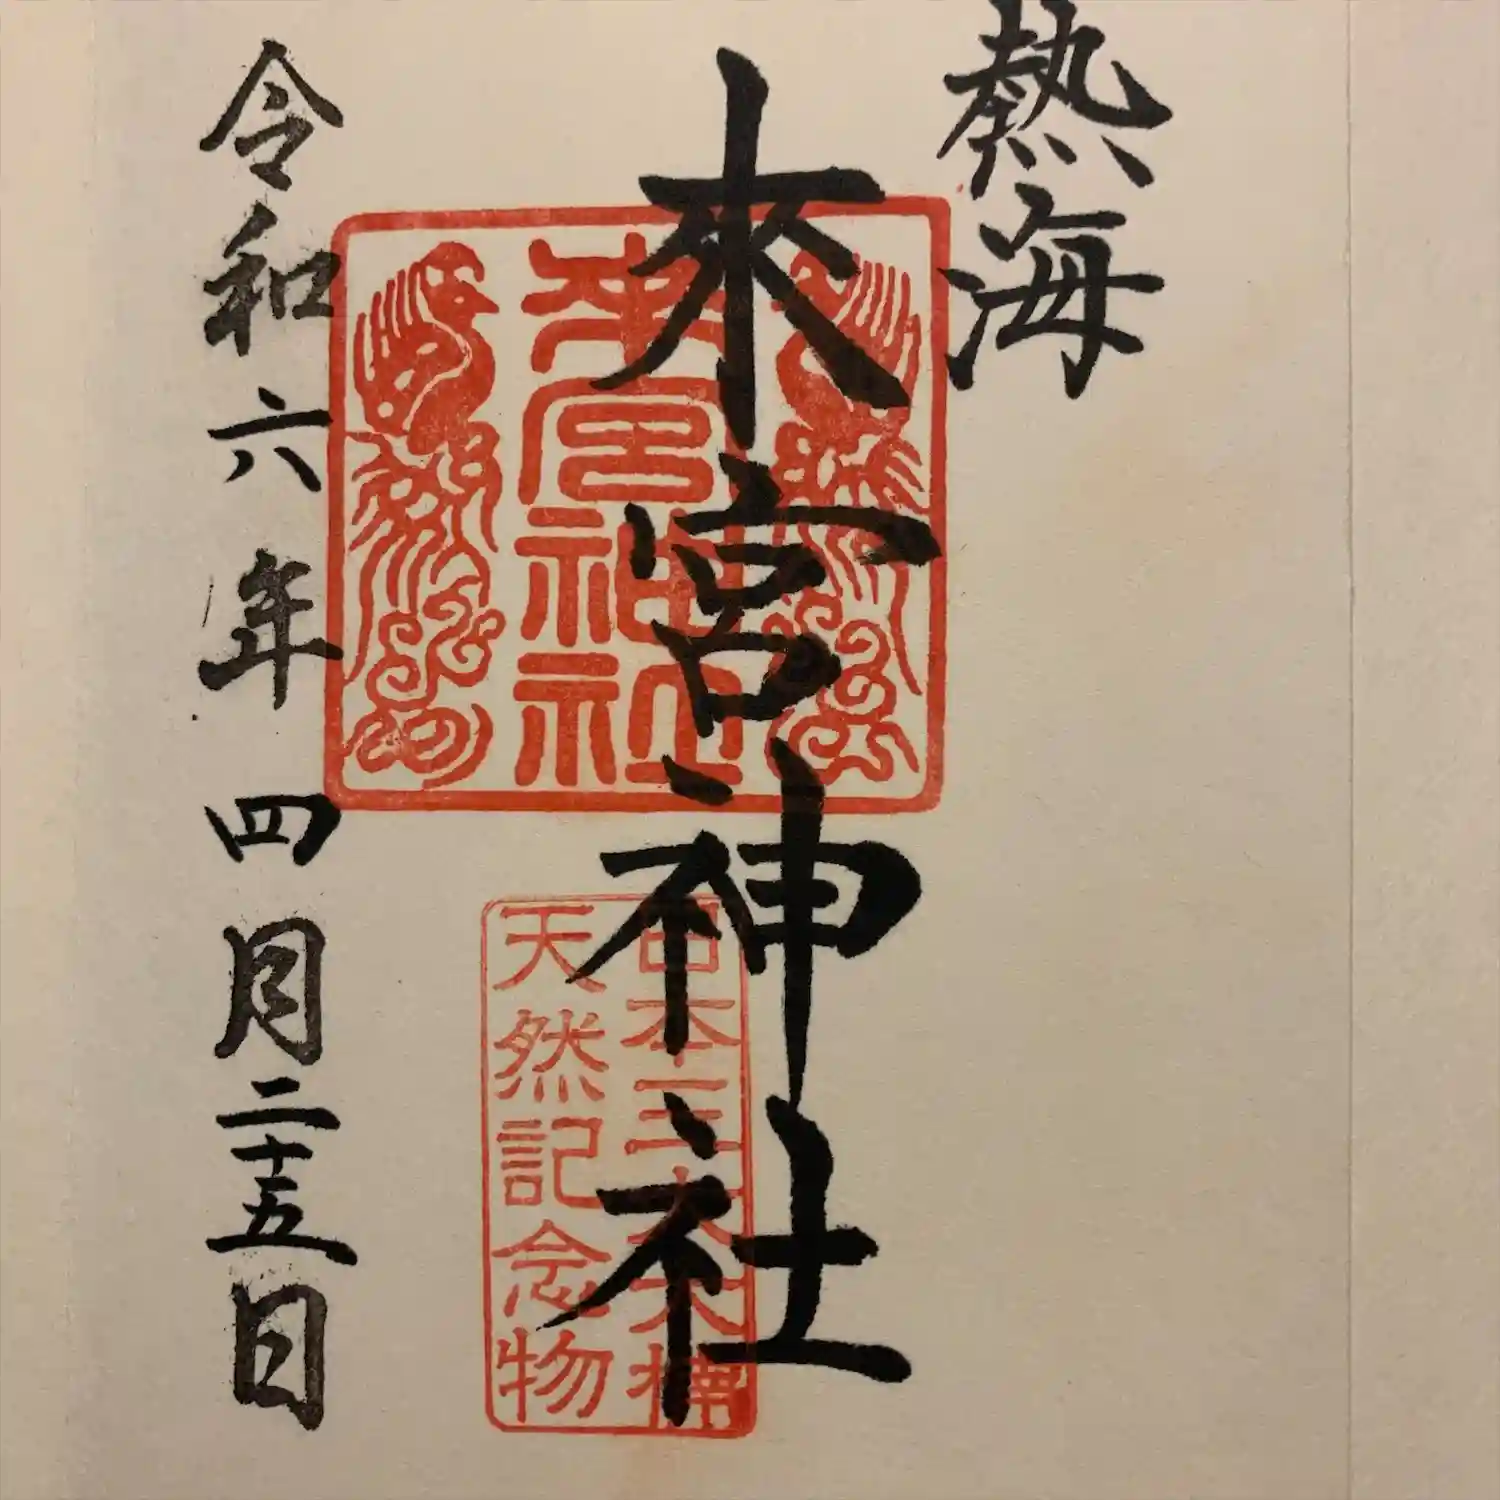 熱海
來宮神社
来宮
神社
日本三大大楠
天然記念物
令和六年四月二十五日